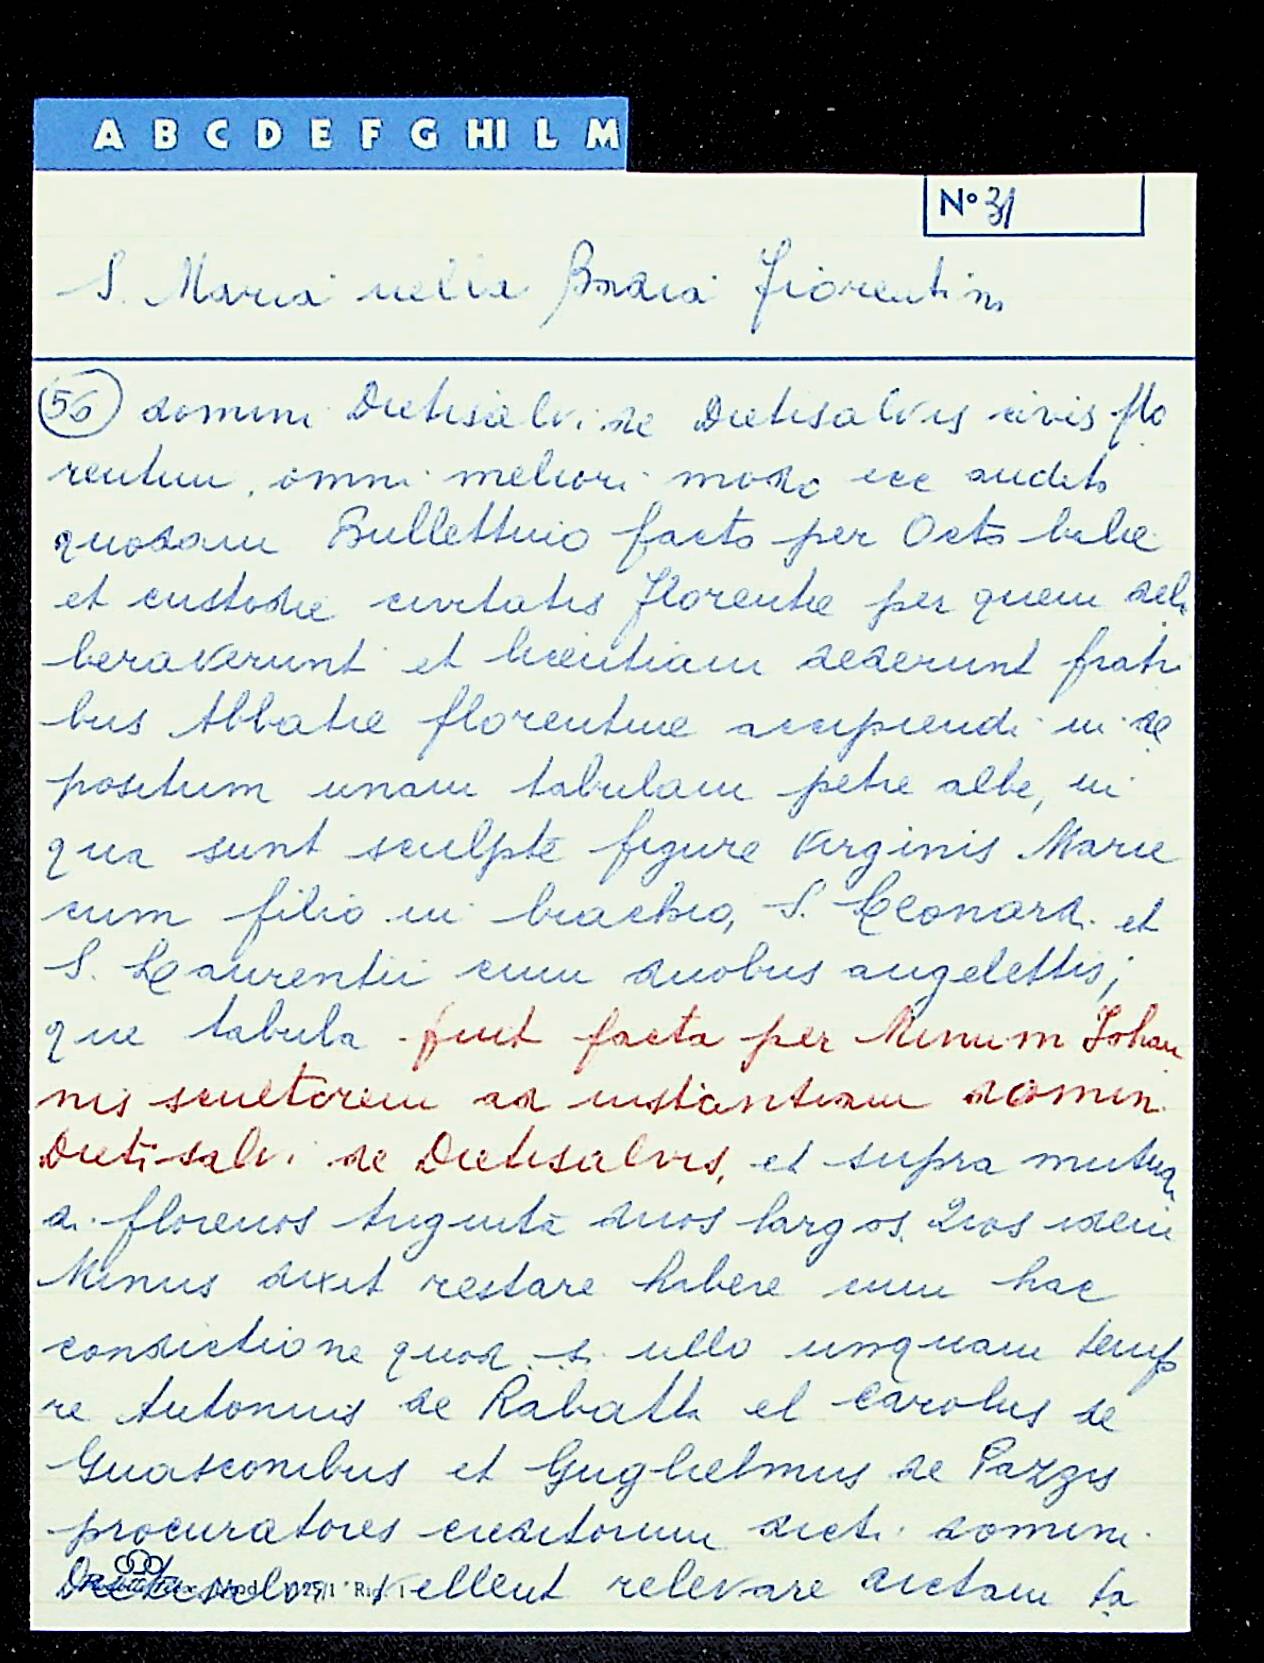 A B C D E F G HI L M
Nº 31
S. Maria nella Badia Fiorentina
56 domini Dietisalvi de Dietisalvis civis flo
rentini, omni meliori modo ecc audito
quodam Bullettino facto per Octo balie
et custodie civitatis Florentie per quem deli
beraverunt et licentiam dederunt fratri
bus Abbatie florentine accipiendi in de
positum unam tabulam petre albe, in
qua sunt sculpte figure Virginis Marie
cum filio in brachio, S. Leonardi et
S. Laurentii cum duobus angelettis;
que tabula fuit facta per Minum Johan
nis scultorem ad instantiam domini
Dietisalvi de Dietisalvis, et supra mutuan
di florenos triginta duos largos. Quos idem
Minus dixit restare habere cum hac
condictione quod si ullo unquam tempo
re Antonius de Rabatta et Carolus de
Guasconibus et Guglielmus de Pazzis
procuratores creditorum dicti domini
Dietisalvi vellent relevare dictam ta